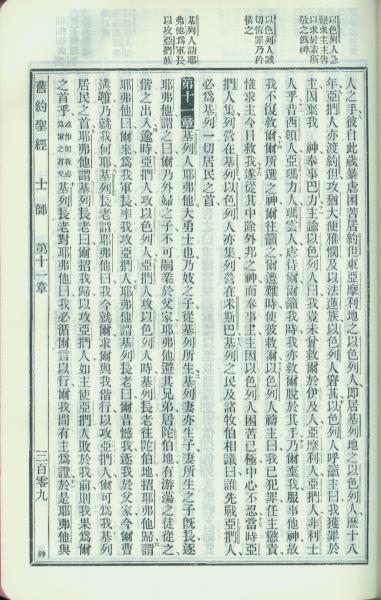 以色列人急
難求主主告
以求於素所
敬之僞神
以色列人誠
切悔罪乃於
憐之
基列人請耶
弗他爲軍長
以攻亞捫族
人之手彼自此歲暴虐困苦居約但東亞摩利地之以色列人即居基列地之以色列人歷十八
年亞捫人亦渡約但攻猶大便雅憫及以法蓮族以色列人窘甚以色列人呼籲主曰我獲罪於
主因棄我 神奉事巴力主諭以色列人曰我豈未曾救爾於伊及人亞摩利人亞捫人非利士
人乎昔西頓人亞瑪力人瑪雲人虐待爾爾籲我時我亦救爾脫於其手乃爾棄我服事他神故
我不復救爾爾所選之神爾往籲之爾遭難時使彼救爾以色列人禱主曰我已犯罪任主懲責
惟求主今日救我遂從其中除外邦之神而奉事主主因以色列人困苦已極中心不忍當時亞
捫人集列營在基列以色列人亦集列營在米斯巴基列之民及諸牧伯相議曰誰先戰亞捫人
必爲基列一切居民之首
第十一章基列人耶弗他大勇士也乃妓之子從基列所生基列妻亦生子妻所生之子旣長逐
耶弗他謂之曰爾乃外婦之子不可嗣業於父家耶弗他避其兄弟居陀伯地有游蕩之徒從之
偕之出入逾時亞捫人攻以色列人亞捫人攻以色列人時基列長老往陀伯地招耶弗他歸謂
耶弗他曰爾來爲我軍長率我攻亞捫人耶弗他謂基列長老曰爾昔憾我逐我於父家今爾曹
遘難乃就我何耶基列長老謂耶弗他曰我今就爾求爾與我偕行以攻亞捫人爾可爲我基列
居民之首耶弗他謂基列長老曰爾招我歸以攻亞捫人如主使亞捫人敗於我前則我果爲爾
之首乎基列長老對耶弗他曰我必循爾言以行爾我間有主爲證於是耶弗他與
舊約聖經 士師 第十一章 三百零九